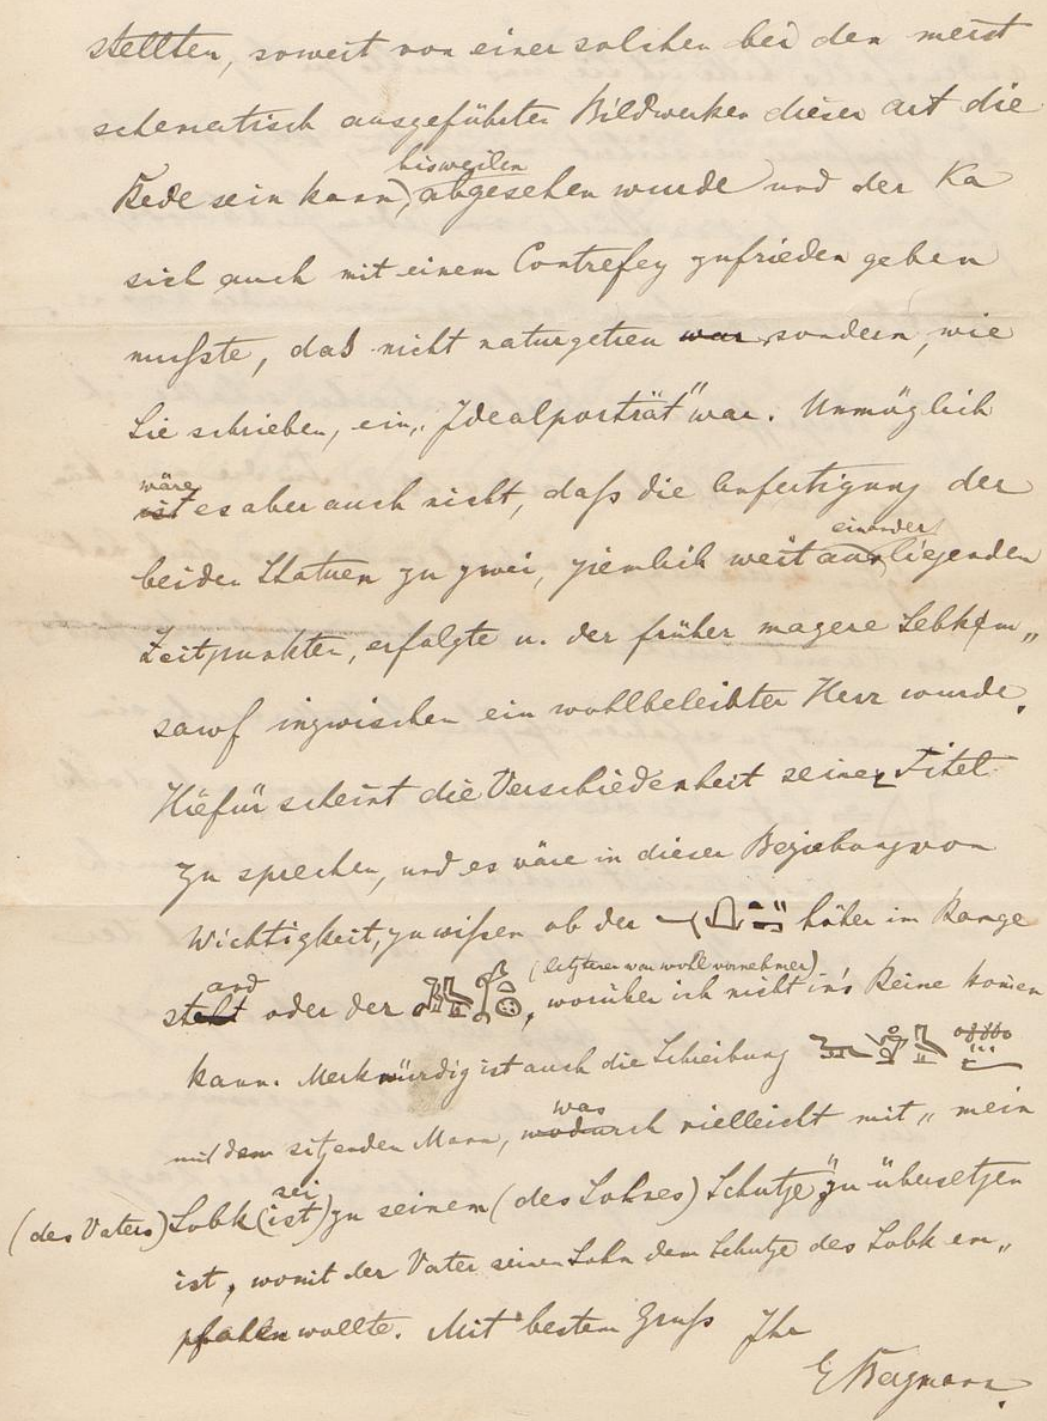 stellten, soweit von einer solchen bei den meist
schematisch ausgeführten Bildwerken dieser Art die
bisweilen
Rede sein kann), abgesehen wurde und der Ka
sich auch mit einem Contrefey zufrieden geben
mußte, das nicht naturgetreu war, sondern, wie
Sie schrieben, ein „Idealporträt" war. Unmöglich
wäre
ist es aber auch nicht, daß die Anfertigung der
einander
beiden Statuen zu zwei, ziemlich weit aus liegenden
Zeitpunkten, erfolgte u. der früher magere Sebkem„
sawf inzwischen ein wohlbeleibter Herr wurde.
Hiefür scheint die Verschiedenheit seiner Titel
zu sprechen, und es wäre in dieser Beziehung von
Wichtigkeit, zu wißen ob der höher im Range
(letzterer war wohl vornehmer)
and
steht oder der , worüber ich nicht in's Reine kom̄en
kann. Merkwürdig ist auch die Schreibung
was
mit dem sitzenden Mann, wodurch vielleicht mit „mein
sei
(des Vaters) Sobk (ist) zu seinem (des Sohnes) Schutze" zu übersetzen
ist, womit der Vater seinen Sohn dem Schutze des Sobk em„
pfehlen wollte. Mit bestem Gruß Ihr
E Bergmann.